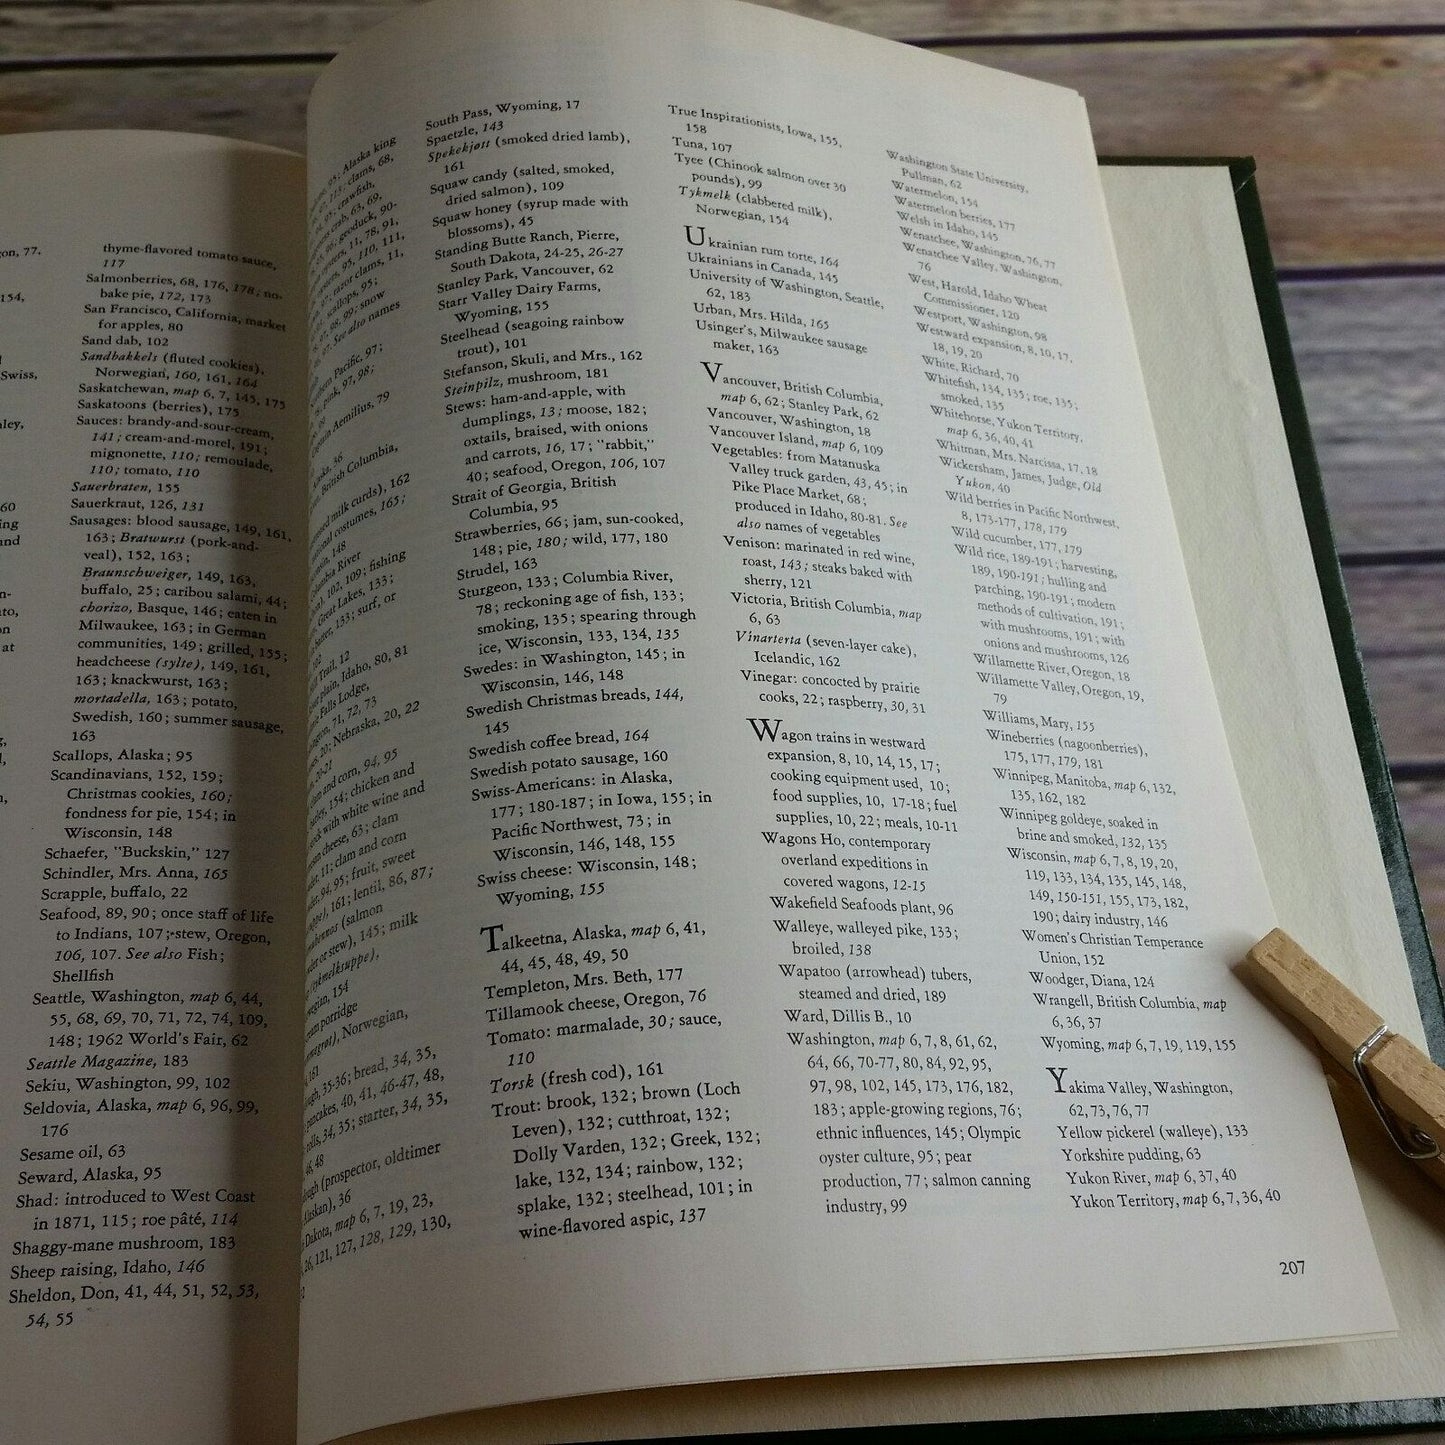 on, 77.
154,
Swiss,
ley,
60
ing
nd
n-
to,
on
at
thyme-flavored tomato sauce,
117
Salmonberries, 68, 176, 178; no-
bake pie, 172, 173
San Francisco, California, market
for apples, 80
Sand dab, 102
Sandbakkels (fluted cookies),
Norwegian, 160, 161, 164
Saskatchewan, map 6, 7, 145, 175
Saskatoons (berries), 175
Sauces: brandy-and-sour-cream,
141; cream-and-morel, 191;
mignonette, 110; remoulade,
110; tomato, 110
Sauerbraten, 155
Sauerkraut, 126, 131
Sausages: blood sausage, 149, 161,
163; Bratwurst (pork-and-
veal), 152, 163;
Braunschweiger, 149, 163,
buffalo, 25; caribou salami, 44;
chorizo, Basque, 146; eaten in
Milwaukee, 163; in German
communities, 149; grilled, 155;
headcheese (sylte), 149, 161,
163; knackwurst, 163;
mortadella, 163; potato,
Swedish, 160; summer sausage,
163
Scallops, Alaska; 95
Scandinavians, 152, 159;
Christmas cookies, 160;
fondness for pie, 154; in
Wisconsin, 148
Schaefer, "Buckskin," 127
Schindler, Mrs. Anna, 165
Scrapple, buffalo, 22
Seafood, 89, 90; once staff of life
to Indians, 107; stew, Oregon,
106, 107. See also Fish;
Shellfish
Seattle, Washington, map 6, 44,
55, 68, 69, 70, 71, 72, 74, 109,
148; 1962 World's Fair, 62
Seattle Magazine, 183
Sekiu, Washington, 99, 102
Seldovia, Alaska, map 6, 96, 99,
176
Sesame oil, 63
Seward, Alaska, 95
Shad: introduced to West Coast
in 1871, 115; roe pâté, 114
Shaggy-mane mushroom, 183
Sheep raising, Idaho, 146
Sheldon, Don, 41, 44, 51, 52, 53,
54, 55
95; Alaska king
clams, 68,
95; crawfish,
crab, 63, 69,
geoduck, 90-
11, 78, 91,
95, 110, 111,
razor clams, 11,
scallops, 95;
98, 99; snow
97. See also names
Pacific, 97;
pink, 97, 98;
Aemilius, 79
36
British Columbia,
milk curds), 162
costumes, 165;
148
River
102, 109; fishing
Great Lakes, 133;
133; surf, or
Trail, 12
plain, Idaho, 80, 81
Falls Lodge,
71, 72, 73
20; Nebraska, 20, 22
20-21
and corn, 94, 95
154; chicken and
with white wine and
cheese, 63; clam
11; clam and corn
94, 95; fruit, sweet
161; lentil, 86, 87;
(salmon
or stew), 145; milk
154
porridge
Norwegian,
161
35-36; bread, 34, 35,
pancakes, 40, 41, 46-47, 48,
rolls, 34, 35; starter, 34, 35,
46, 48
(prospector, oldtimer
36
Dakota, map 6, 7, 19, 23,
26, 121, 127, 128, 129, 130,
South Pass, Wyoming, 17
Spaetzle, 143
Spekekjøtt (smoked dried lamb),
161
Squaw candy (salted, smoked,
dried salmon), 109
Squaw honey (syrup made with
blossoms), 45
Standing Butte Ranch, Pierre,
South Dakota, 24-25, 26-27
Stanley Park, Vancouver, 62
Starr Valley Dairy Farms,
Wyoming, 155
Steelhead (seagoing rainbow
trout), 101
Stefanson, Skuli, and Mrs., 162
Steinpilz, mushroom, 181
Stews: ham-and-apple, with
dumplings, 13; moose, 182;
oxtails, braised, with onions
and carrots, 16, 17; "rabbit,"
40; seafood, Oregon, 106, 107
Strait of Georgia, British
Columbia, 95
Strawberries, 66; jam, sun-cooked,
148; pie, 180; wild, 177, 180
Strudel, 163
Sturgeon, 133; Columbia River,
78; reckoning age of fish, 133;
smoking, 135; spearing through
ice, Wisconsin, 133, 134, 135
Swedes: in Washington, 145; in
Wisconsin, 146, 148
Swedish Christmas breads, 144,
145
Swedish coffee bread, 164
Swedish potato sausage, 160
Swiss-Americans: in Alaska,
177; 180-187; in Iowa, 155; in
Pacific Northwest, 73; in
Wisconsin, 146, 148, 155
Swiss cheese: Wisconsin, 148;
Wyoming, 155
Talkeetna, Alaska, map 6, 41,
44, 45, 48, 49, 50
Templeton, Mrs. Beth, 177
Tillamook cheese, Oregon, 76
Tomato: marmalade, 30; sauce,
110
Torsk (fresh cod), 161
Trout: brook, 132; brown (Loch
Leven), 132; cutthroat, 132;
Dolly Varden, 132; Greek, 132;
lake, 132, 134; rainbow, 132;
splake, 132; steelhead, 101; in
wine-flavored aspic, 137
True Inspirationists, Iowa, 155,
158
Tuna, 107
Tyee (Chinook salmon over 30
pounds), 99
Tykmelk (clabbered milk),
Norwegian, 154
Ukrainian rum torte, 164
Ukrainians in Canada, 145
University of Washington, Seattle,
62, 183
Urban, Mrs. Hilda, 165
Usinger's, Milwaukee sausage
maker, 163
Vancouver, British Columbia,
map 6, 62; Stanley Park, 62
Vancouver, Washington, 18
Vancouver Island, map 6, 109
Vegetables: from Matanuska
Valley truck garden, 43, 45; in
Pike Place Market, 68;
produced in Idaho, 80-81. See
also names of vegetables
Venison: marinated in red wine,
roast, 143; steaks baked with
sherry, 121
Victoria, British Columbia, map
6, 63
Vínarterta (seven-layer cake),
Icelandic, 162
Vinegar: concocted by prairie
cooks, 22; raspberry, 30, 31
Wagon trains in westward
expansion, 8, 10, 14, 15, 17;
cooking equipment used, 10;
food supplies, 10, 17-18; fuel
supplies, 10, 22; meals, 10-11
Wagons Ho, contemporary
overland expeditions in
covered wagons, 12-15
Wakefield Seafoods plant, 96
Walleye, walleyed pike, 133;
broiled, 138
Wapatoo (arrowhead) tubers,
steamed and dried, 189
Ward, Dillis B., 10
Washington, map 6, 7, 8, 61, 62,
64, 66, 70-77, 80, 84, 92, 95,
97, 98, 102, 145, 173, 176, 182,
183; apple-growing regions, 76;
ethnic influences, 145; Olympic
oyster culture, 95; pear
production, 77; salmon canning
industry, 99
Washington State University,
Pullman, 62
Watermelon, 154
Watermelon berries, 177
Welsh in Idaho, 145
Wenatchee, Washington, 76, 77
Wenatchee Valley, Washington,
76
West, Harold, Idaho Wheat
Commissioner, 120
Westport, Washington, 98
Westward expansion, 8, 10, 17,
18, 19, 20
White, Richard, 70
Whitefish, 134, 135; roe, 135;
smoked, 135
Whitehorse, Yukon Territory,
map 6, 36, 40, 41
Whitman, Mrs. Narcissa, 17, 18
Wickersham, James, Judge, Old
Yukon, 40
Wild berries in Pacific Northwest,
8, 173-177, 178, 179
Wild cucumber, 177, 179
Wild rice, 189-191; harvesting,
189, 190-191; hulling and
parching, 190-191; modern
methods of cultivation, 191;
with mushrooms, 191; with
onions and mushrooms, 126
Willamette River, Oregon, 18
Willamette Valley, Oregon, 19,
79
Williams, Mary, 155
Wineberries (nagoonberries),
175, 177, 179, 181
Winnipeg, Manitoba, map 6, 132,
135, 162, 182
Winnipeg goldeye, soaked in
brine and smoked, 132, 135
Wisconsin, map 6, 7, 8, 19, 20,
119, 133, 134, 135, 145, 148,
149, 150-151, 155, 173, 182,
190; dairy industry, 146
Women's Christian Temperance
Union, 152
Woodger, Diana, 124
Wrangell, British Columbia, map
6, 36, 37
Wyoming, map 6, 7, 19, 119, 155
Yakima Valley, Washington,
62, 73, 76, 77
Yellow pickerel (walleye), 133
Yorkshire pudding, 63
Yukon River, map 6, 37, 40
Yukon Territory, map 6, 7, 36, 40
207